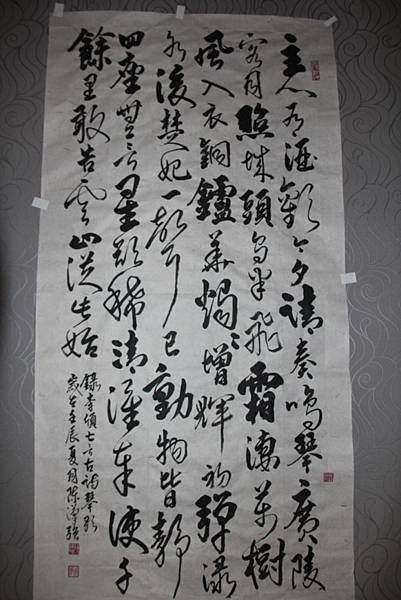 主人有酒歡今夕請奏鳴琴廣陵
客月照城頭烏半飛霜淒萬樹
風入衣銅鑪華燭〻增輝初彈淥
水後楚妃一聲已動物皆靜
四座無言星欲稀清淮奉使千
餘里敢告雲山從此始
錄李頎七言古詩琴歌
歲在壬辰夏月陳